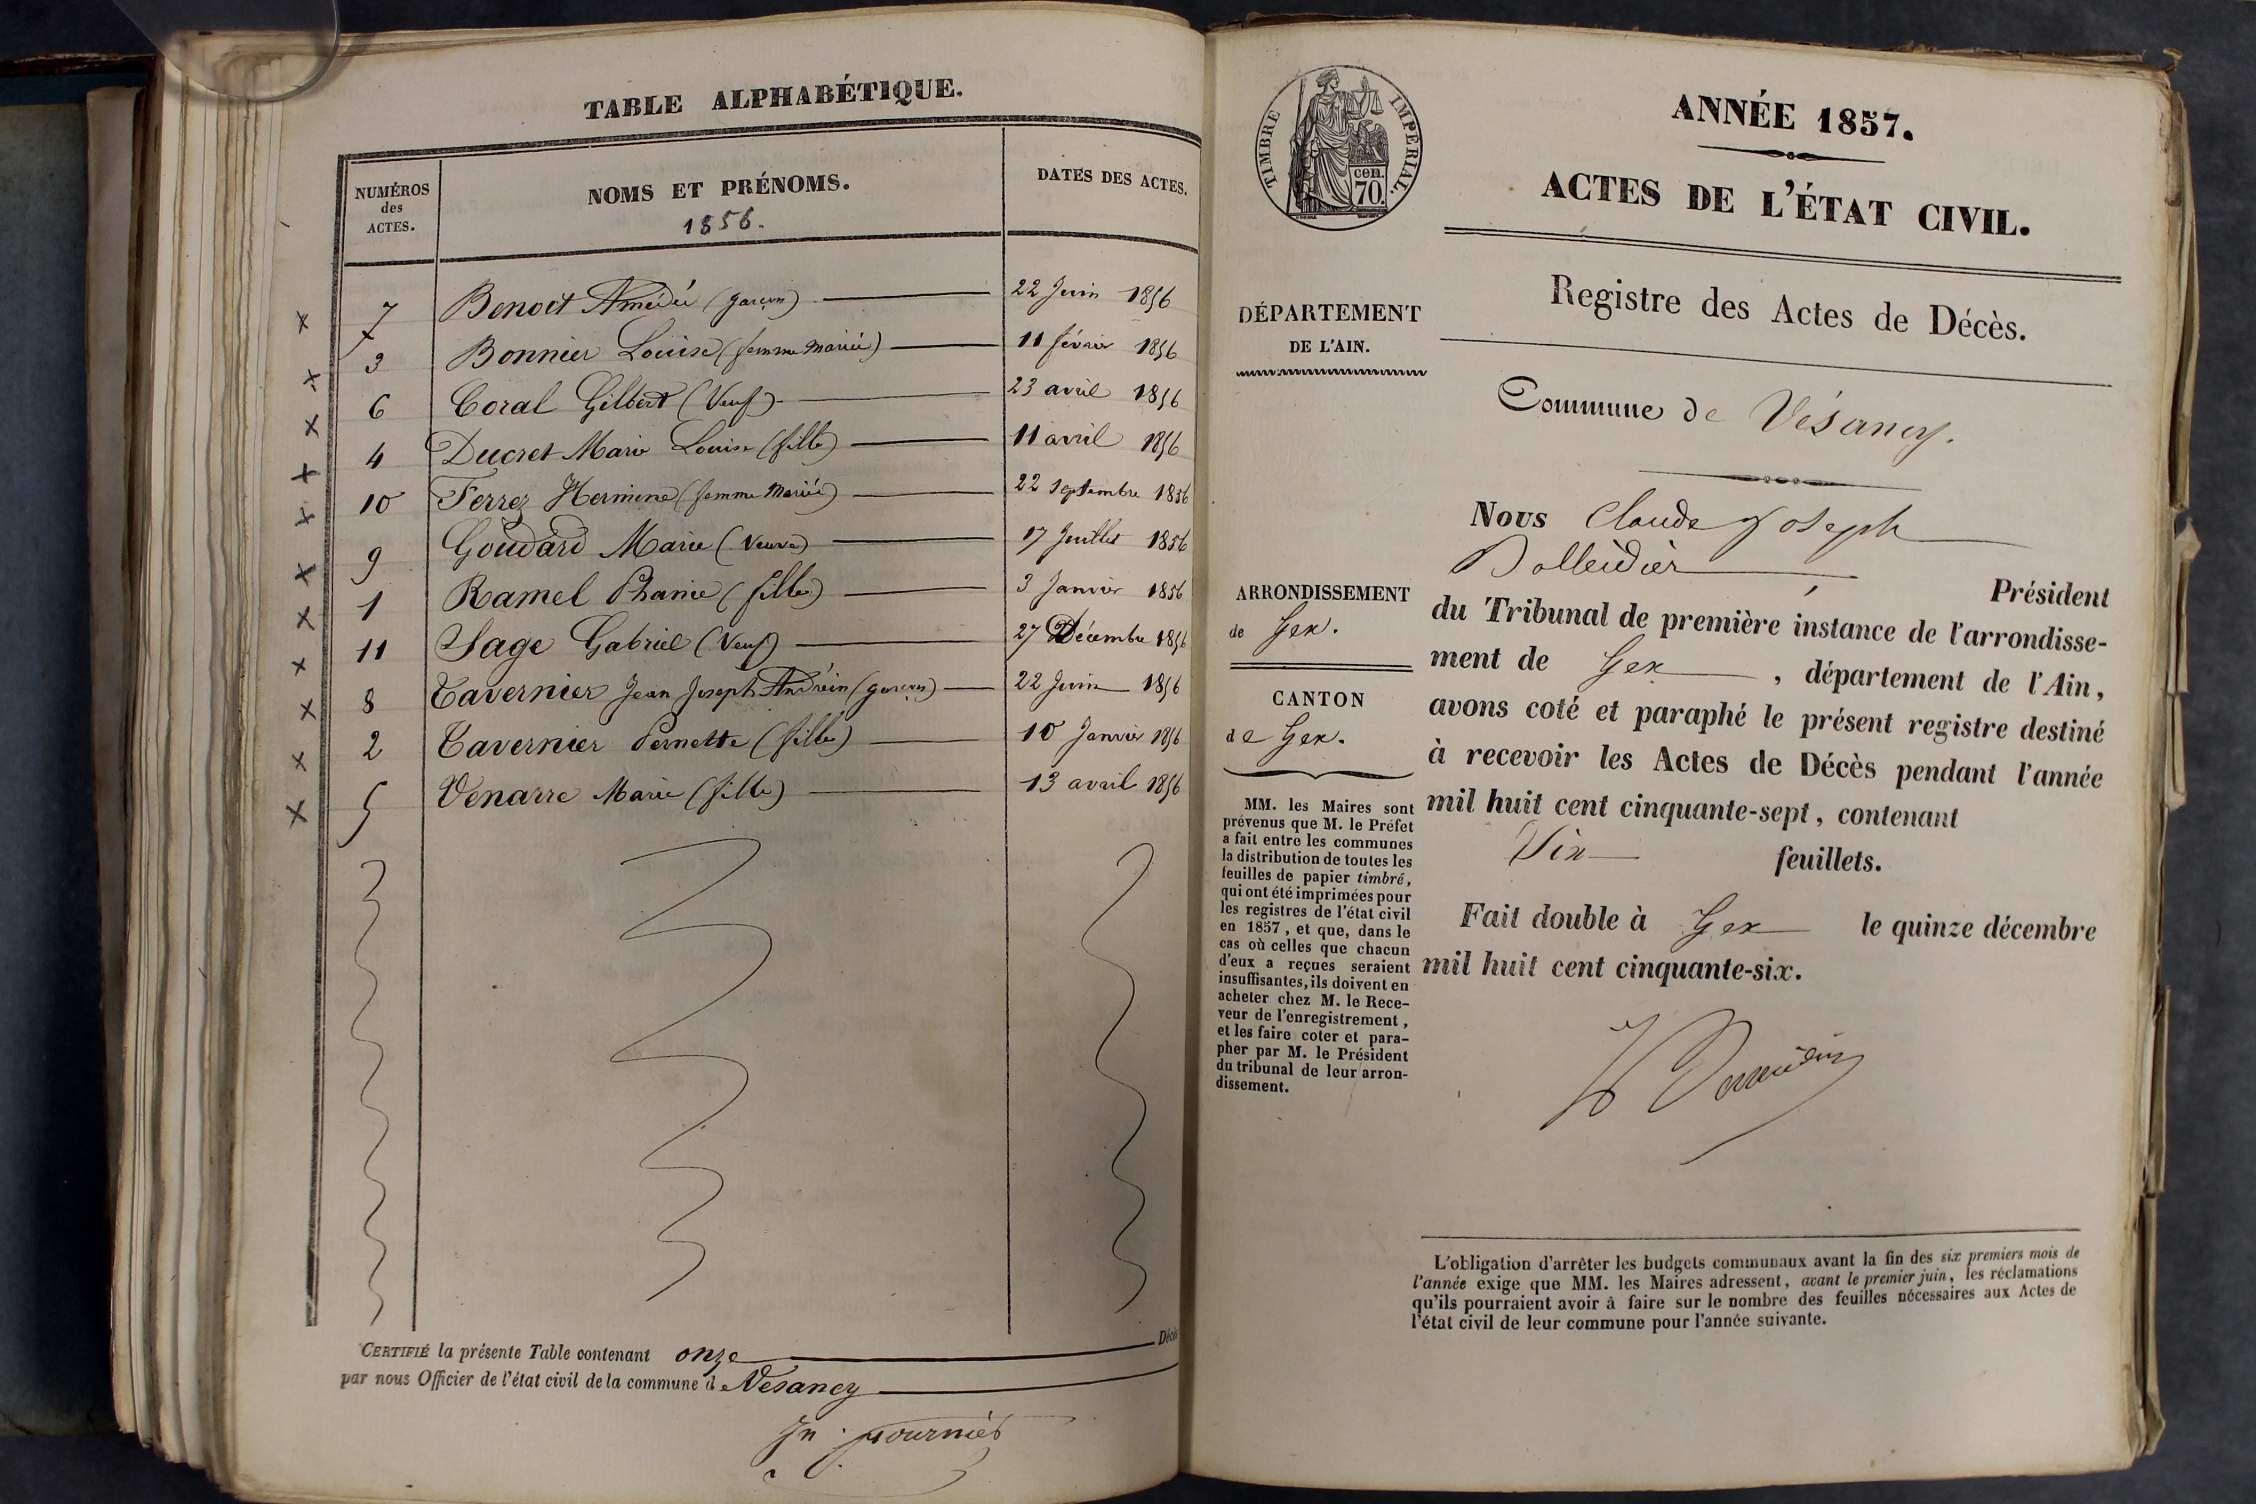 TABLE ALPHABÉTIQUE.
NUMÉROS
des
ACTES.
NOMS ET PRÉNOMS.
1856.
DATES DES ACTES.
7 Benoit Amédée (garçon) 22 Juin 1856
3 Bonnier Louise (femme Mariée) 11 février 1856
6 Coral Gilbert (Veuf) 23 avril 1856
4 Ducret Marie Louise (fille) 11 avril 1856
10 Ferrez Hermine (femme Mariée) 22 septembre 1856
9 Goudard Marie (Veuve) 17 Juillet 1856
1 Ramel Phanie (fille) 3 Janvier 1856
11 Sage Gabriel (Veuf) 27 Décembre 1856
8 Tavernier Jean Joseph (garçon) 22 Juin 1856
2 Tavernier Pernette (fille) 10 Janvier 1856
5 Venarre Marie (fille) 13 avril 1856
CERTIFIÉ la présente Table contenant onze Décès
par nous Officier de l'état civil de la commune de Vesancy
Jn. fournier
TIMBRE IMPERIAL.
cen.
70.
ANNÉE 1857.
ACTES DE L'ÉTAT CIVIL.
Registre des Actes de Décès.
DÉPARTEMENT
DE L'AIN.
Commune de Vésancy.
Nous Claude Joseph
Président
ARRONDISSEMENT
de Gex.
CANTON
de Gex.
du Tribunal de première instance de l'arrondisse-
ment de Gex, département de l'Ain,
avons coté et paraphé le présent registre destiné
à recevoir les Actes de Décès pendant l'année
mil huit cent cinquante-sept, contenant
feuillets.
Fait double à Gex le quinze décembre
mil huit cent cinquante-six.
MM. les Maires sont
prévenus que M. le Préfet
a fait entre les communes
la distribution de toutes les
feuilles de papier timbré,
qui ont été imprimées pour
les registres de l'état civil
en 1857, et que, dans le
cas où celles que chacun
d'eux a reçues seraient
insuffisantes, ils doivent en
acheter chez M. le Rece-
veur de l'enregistrement,
et les faire coter et para-
pher par M. le Président
du tribunal de leur arron-
dissement.
L'obligation d'arrêter les budgets communaux avant la fin des six premiers mois de
l'année exige que MM. les Maires adressent, avant le premier juin, les réclamations
qu'ils pourraient avoir à faire sur le nombre des feuilles nécessaires aux Actes de
l'état civil de leur commune pour l'année suivante.